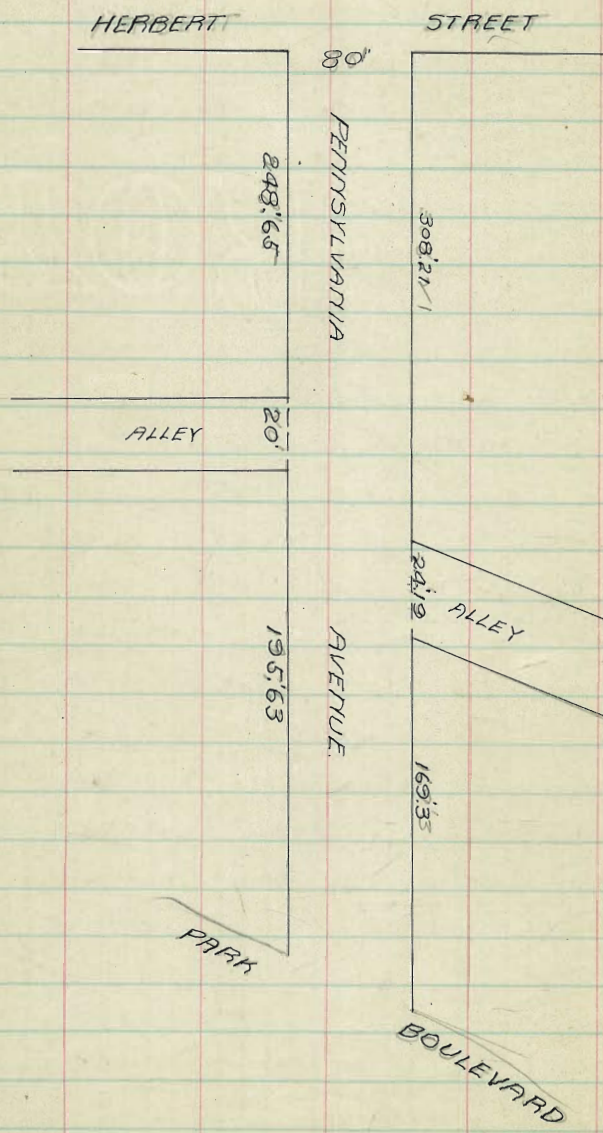 HERBERT STREET
80'
PENNSYLVANIA
248.'65
308.'21
20'
ALLEY
24.'19
ALLEY
AVENUE.
195.'63
169.'3
PARK
BOULEVARD